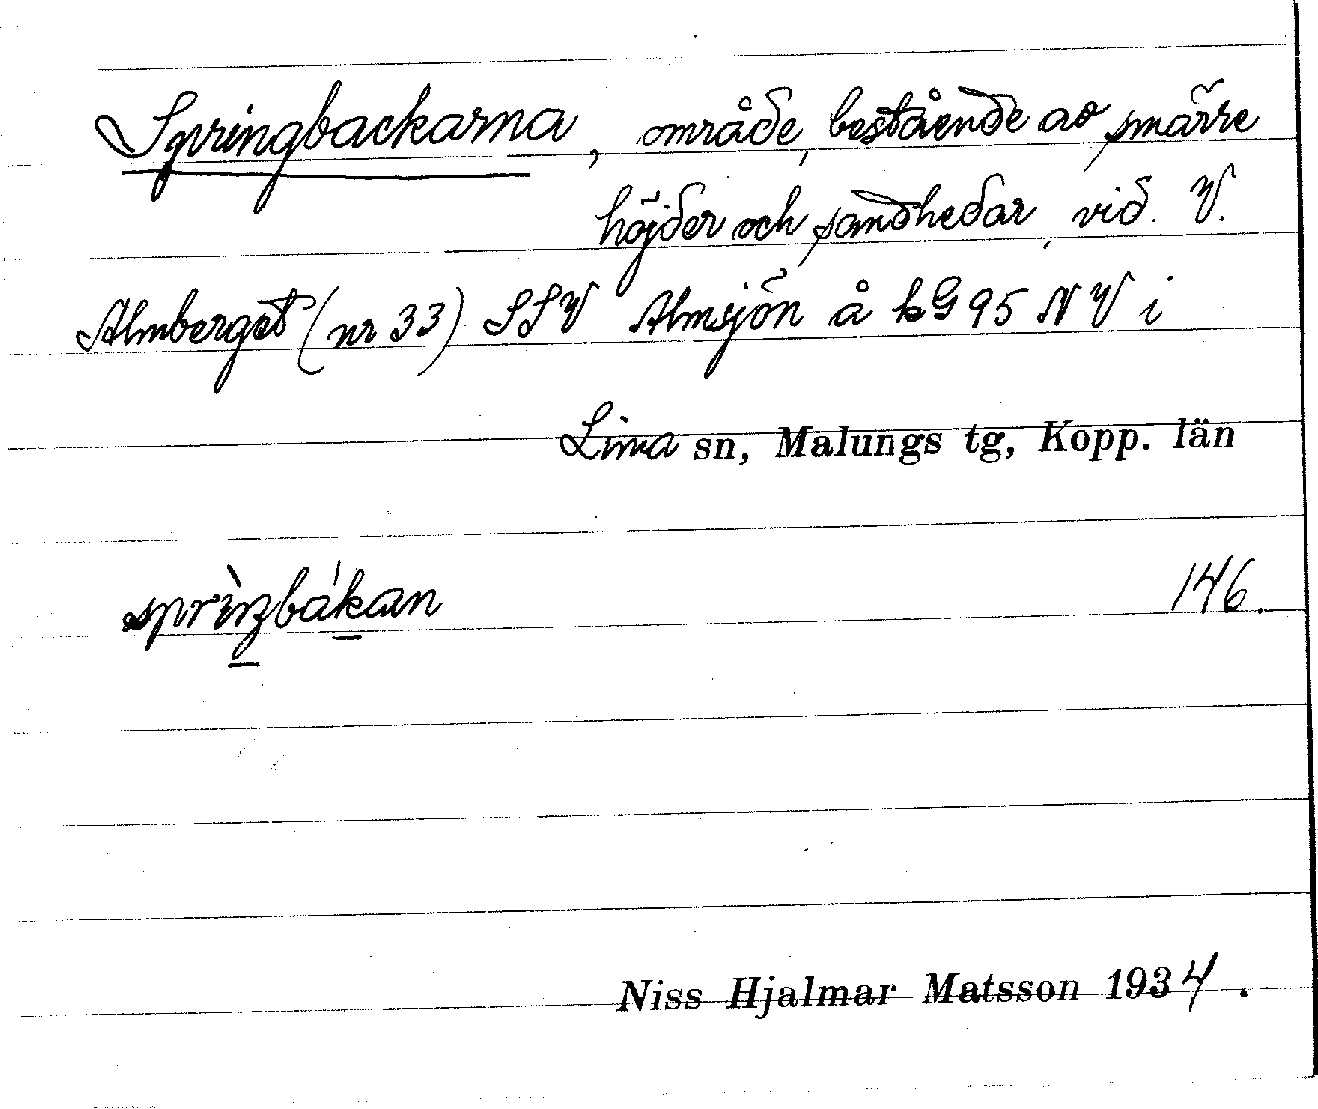 Springbackarna, område, bestående av smärre
höjder och sandhedar, vid. V.
Almberget (nr 33) SSV Almsjön å kG 95 N V i
Lima sn, Malungs tg, Kopp. län
sprìŋbákan 146.
Niss Hjalmar Matsson 1934.